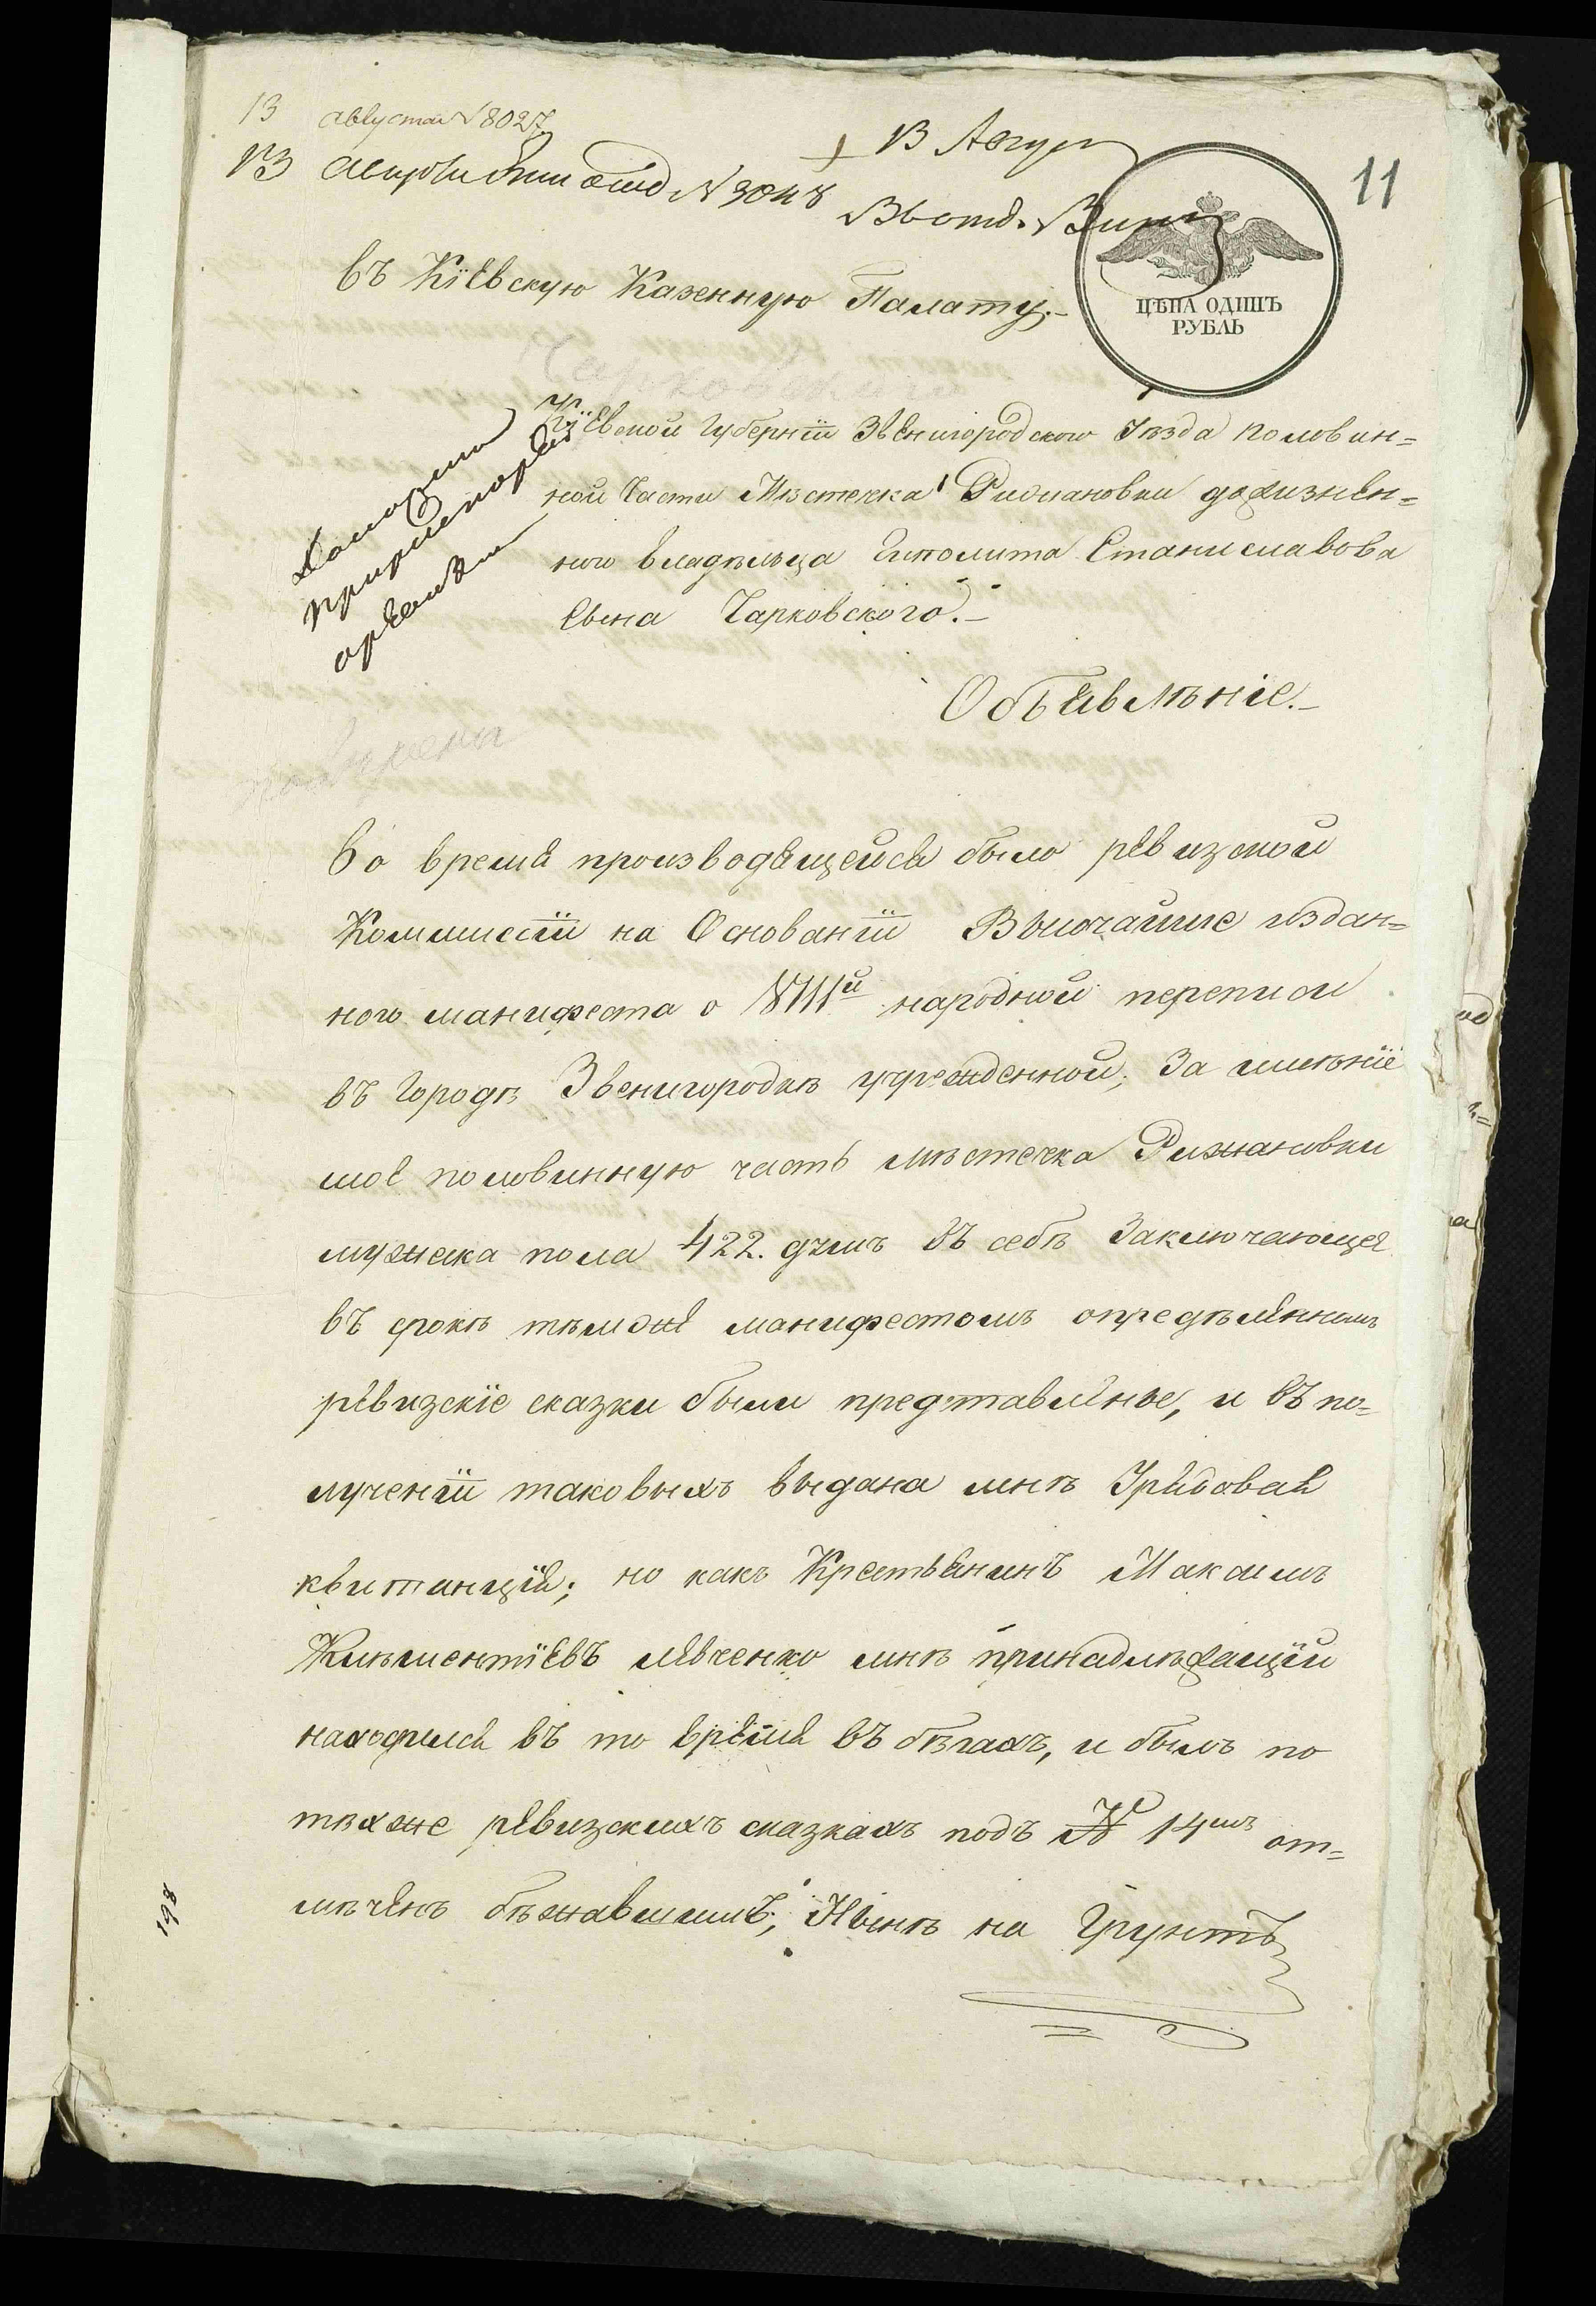 13 августа №8027
13 Августа отд №3048
13 Август
Въ отд.
11
ЦѢНА ОДИНЪ
РУБЛЬ
въ Кіевскую Казенную Палату.-
Чарковскаго
Кіевской Губерніи Звенигородского Уѣзда половин=
ной Части Мѣстечка Рижановки дожизнен=
ного владѣльца Иполита Станиславова
Сына Чарковского.-
Объявлѣніе.-
Во время производящейся было ревизской
Коммисіи на Основаніи Высочайше издан=
ного манифеста о VIIIй народной переписи
въ Городѣ Звенигородкѣ учрежденной, За имѣніе
мое половинную часть мѣстечка Рижановки
мужеска пола 422. душъ въ себѣ Заключающее
въ срокъ тѣмже манифестомъ опредѣленнимъ
ревизскіе сказки были представлены, и въ по=
лученіи таковыхъ выдана мнѣ Урядовая
квитанція; но какъ Крестьянинъ Максимъ
Климентіевъ левченко мнѣ принадлѣжащій
находился въ то время въ бѣгахъ, и былъ по
тѣхже ревизскихъ сказкахъ подъ № 14мъ от=
мѣченъ бѣжавшимъ; Нынѣ на Грунтъ
198